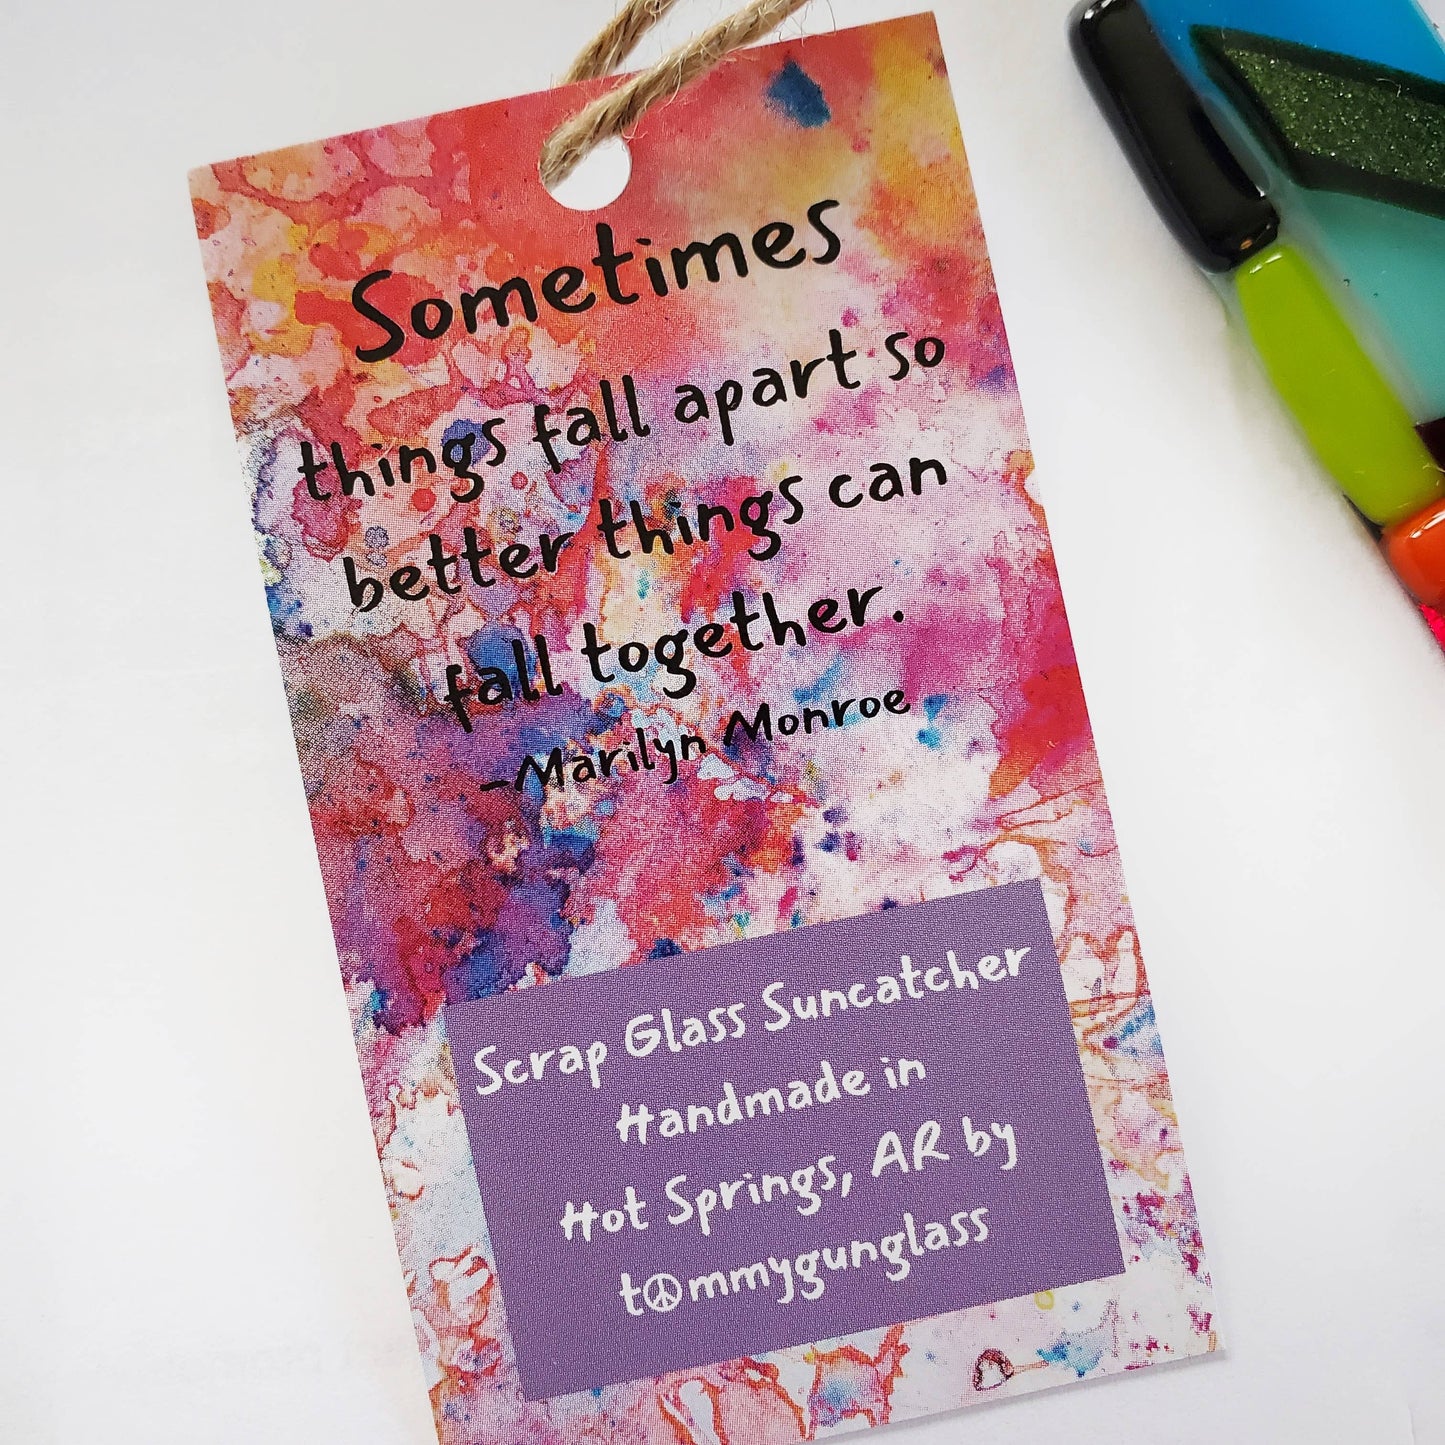 Sometimes
things fall apart so
better things can
fall together.
-Marilyn Monroe
Scrap Glass Suncatcher
Handmade in
Hot Springs, AR by
t☮mmygunglass